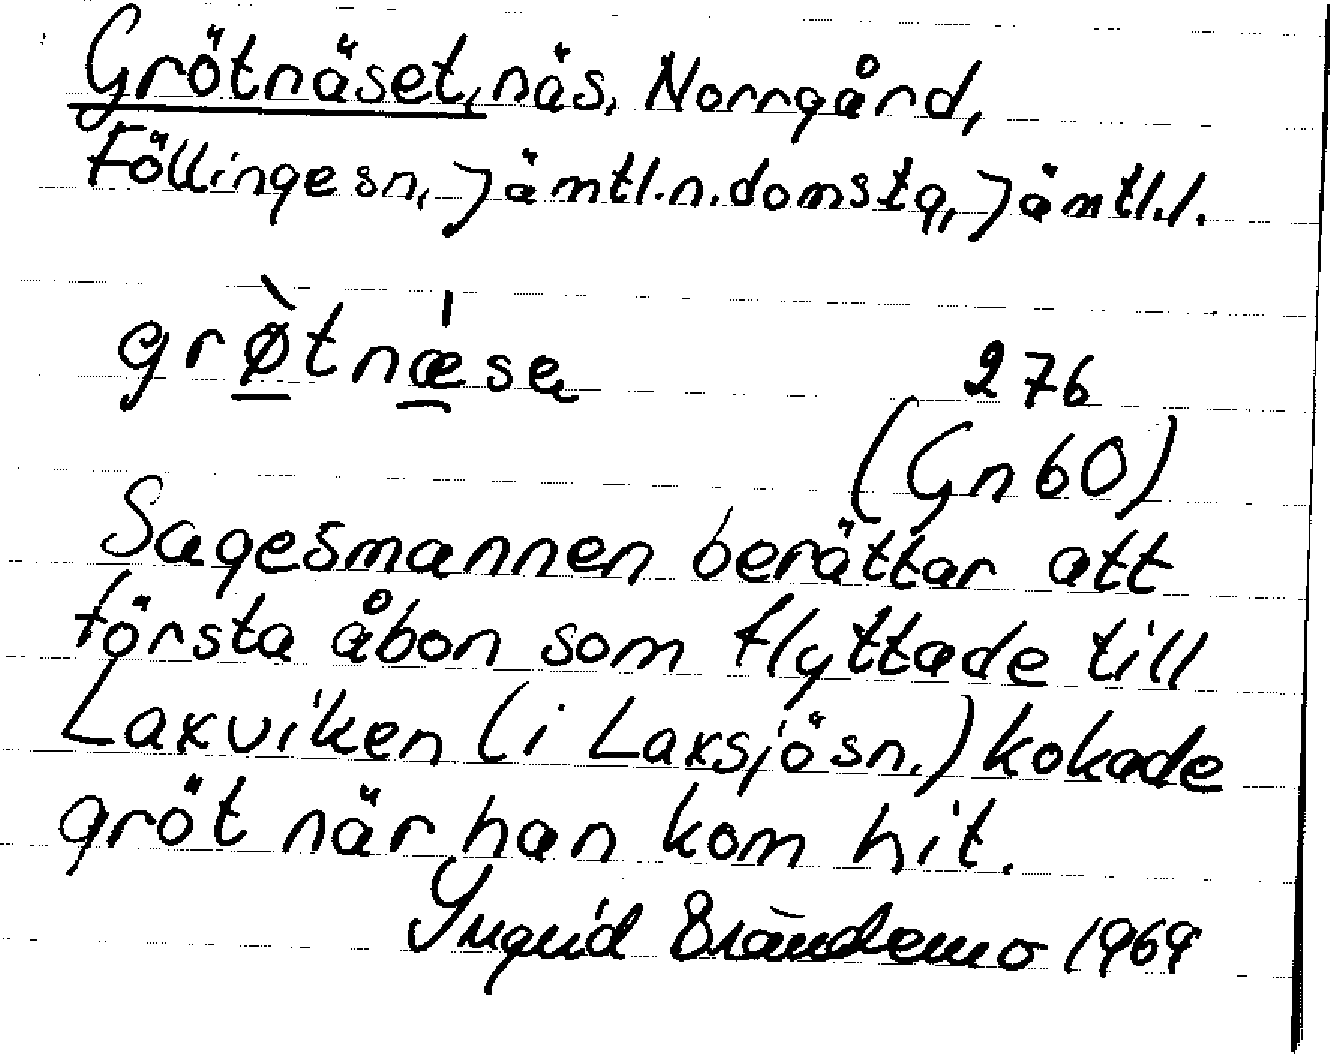 Grötnäset, näs, Norrgård,
Föllinge sn, Jämtl. n. domstg, Jämtl. l.
grø̀tnǽsa
276
(Gn 60)
Sagesmannen berättar att
första åbon som flyttade till
Laxviken (i Laxsjö sn.) kokade
gröt när han kom hit.
Ingrid Brändemo 1969